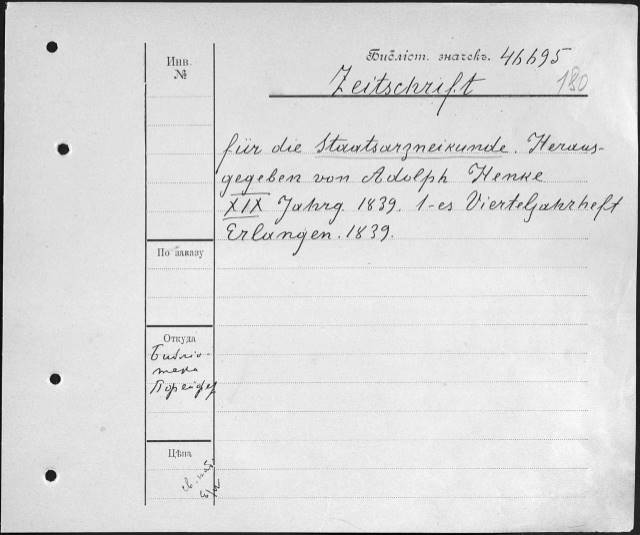 Инв.
№
Библіот. значекъ. 46695
Zeitschrift
180
für die Staatsarzneikunde. Heraus-
gegeben von Adolph Henke
XIX Jahrg. 1839. 1-es Vierteljahrheft
Erlangen. 1839.
По заказу
Откуда
Библіо-
тека
Цѣна